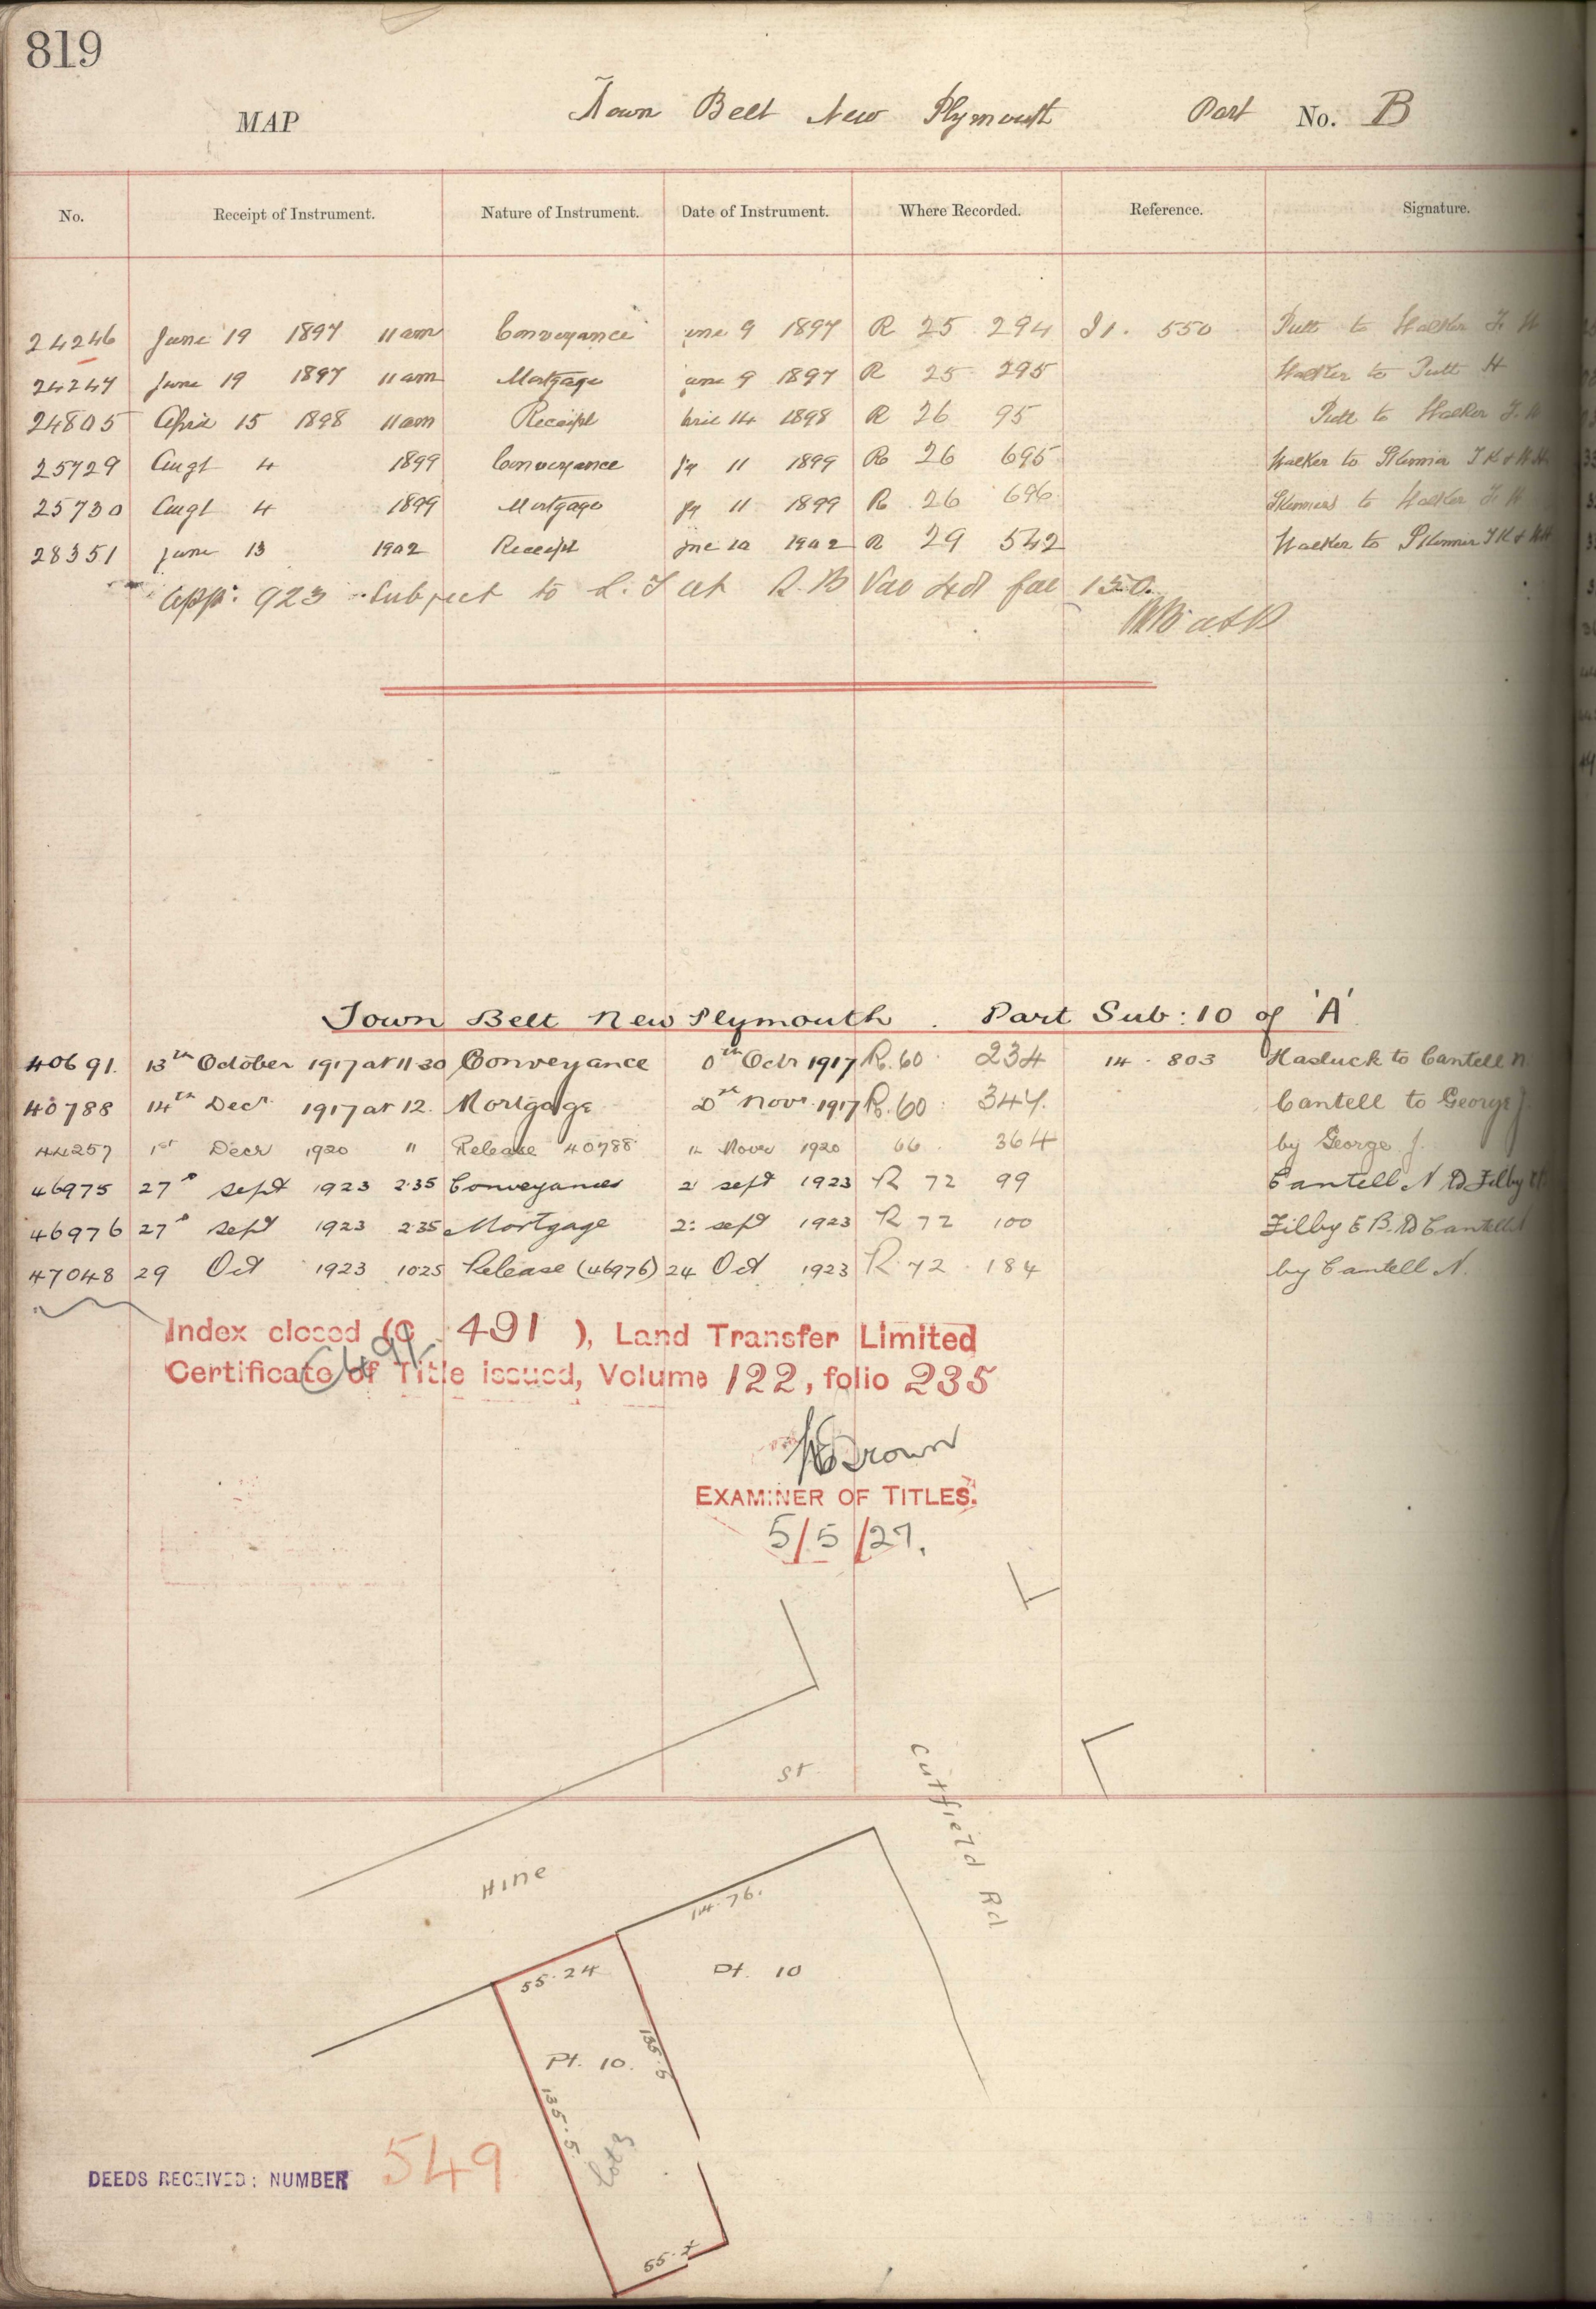 819
MAP Town Belt New Plymouth Part No. B
No. Receipt of Instrument. Nature of Instrument. Date of Instrument. Where Recorded. Reference. Signature.
24246 June 19 1897 11 am Conveyance une 9 1897 R 25 294 I 1. 550 Putt to Walker F. W
24247 June 19 1897 11 am Mortgage une 9 1897 R 25 295 Walker to Putt H
24805 April 15 1898 11 am Receipt bril 14 1898 R 26 95 Putt to Walker F. W
25729 Augt 4 1899 Conveyance 11 1899 R 26 695 Walker to
25730 Augt 4 1899 Mortgage 11 1899 R 26 696 to Walker F. W
28351 June 13 1902 Receipt une 10 1902 R 29 542 Walker to
App: 923 Subject to L. T at R. B 150.
Town Belt New Plymouth. Part Sub: 10 of 'A'
40691. 13th October 1917 at 11 30 Conveyance 0th Octr 1917 R. 60 234 14 . 803 Hasluck to Cantell N
40788 14th Decr 1917 at 12. Mortgage Novr 1917 R. 60 347. Cantell to George J.
44257 1st Decr 1920 " Release 40788 Novr 1920 66 . 364 by George J.
46975 27th Sept 1923 2.35 Conveyance 2 sept 1923 R 72 99 Cantell N to Filby
46976 27th Sept 1923 2.35 Mortgage 2: sept 1923 R 72 100 Filby E B. to Cantell N
47048 29 Oct 1923 10 25 Release (46976) 24 Oct 1923 R. 72 . 184 by Cantell N.
Index closed (C 491 ), Land Transfer Limited
C 491
Certificate of Title issued, Volume 122, folio 235
Brown
EXAMINER OF TITLES.
5/5/27.
St
Cutfield Rd
Hine
114.76.
55.24
Pt. 10
Pt. 10.
135.5
135.5
lot 3
55.
DEEDS RECEIVED: NUMBER 549